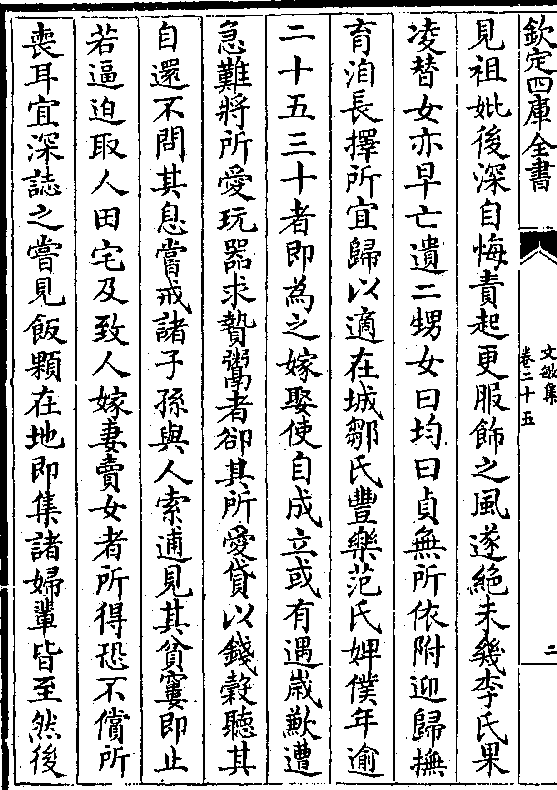 欽定四庫全書
文敏集
卷二十五
二
見祖妣後深自悔責起更服飾之風遂絶未幾李氏果
凌替女亦早亡遺二甥女曰均曰貞無所依附迎歸撫
育洎長擇所宜歸以適在城鄒氏豐樂范氏婢僕年逾
二十五三十者即為之嫁娶使自成立或有遇嵗歉遭
急難將所愛玩器求贄鬻者卻其所愛貸以錢榖聽其
自還不問其息嘗戒諸子孫與人索逋見其貧窶即止
若逼迫取人田宅及致人嫁妻賣女者所得恐不償所
喪耳宜深誌之嘗見飯顆在地即集諸婦輩皆至然後